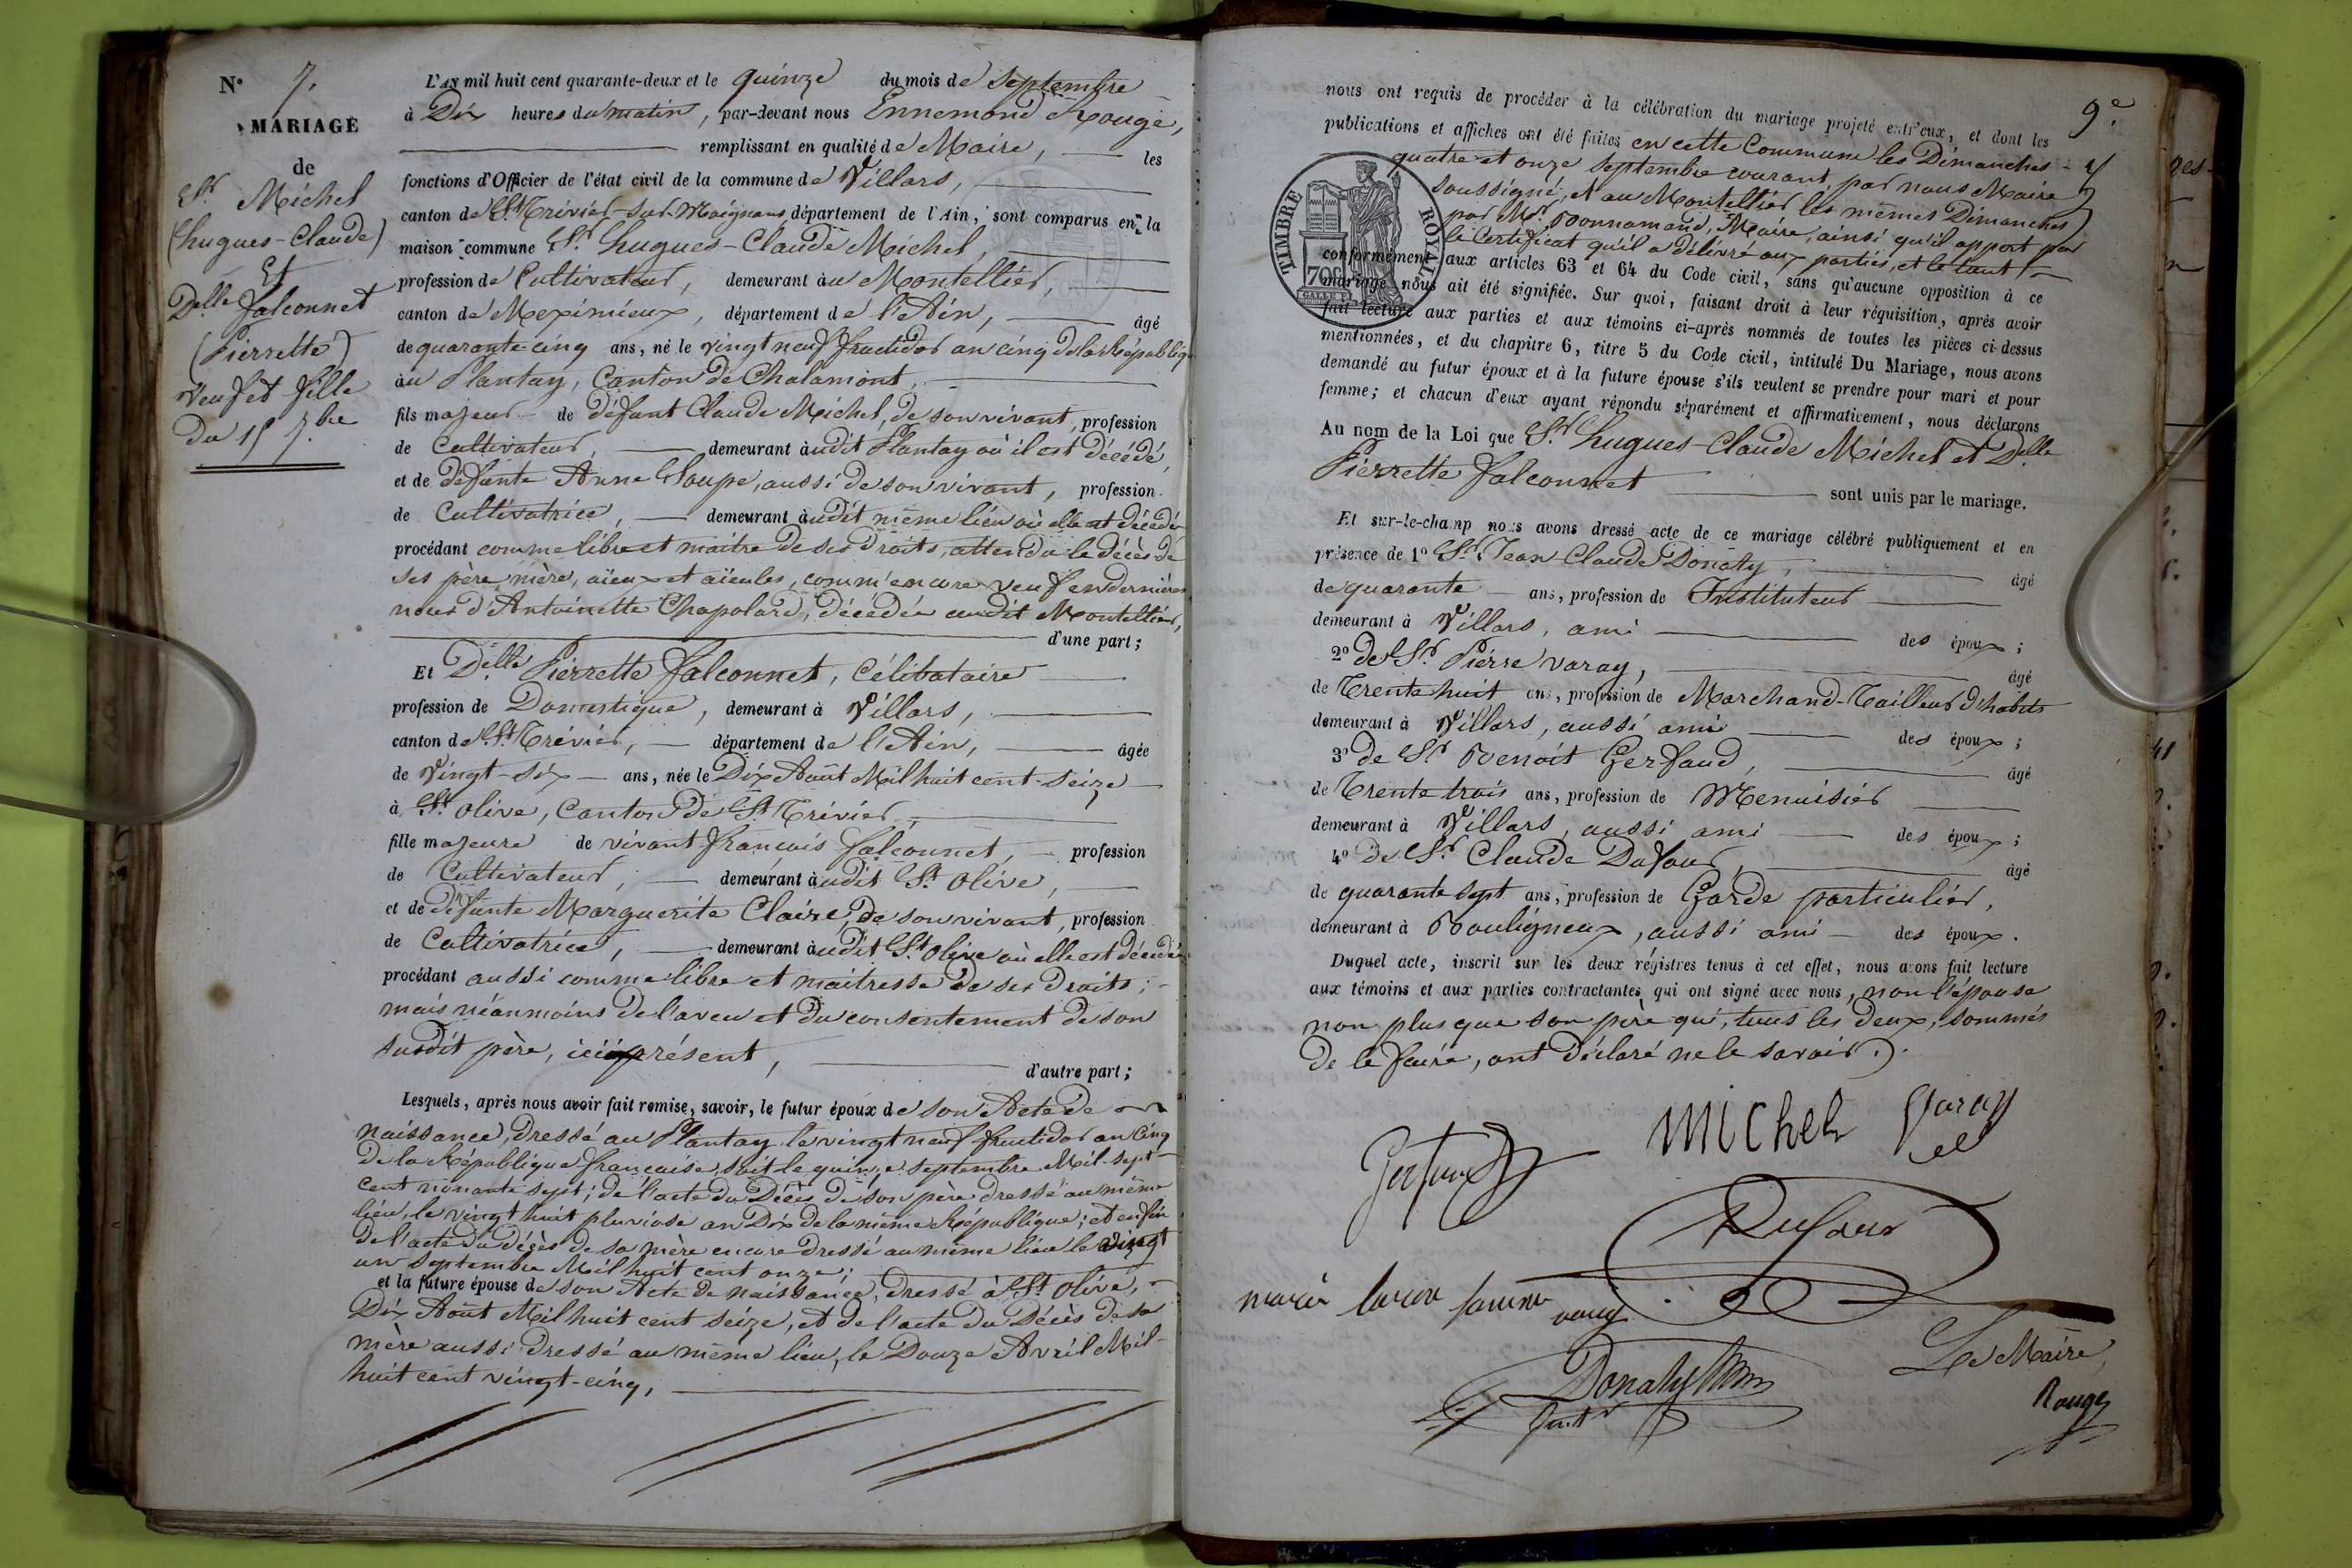 N° 7.
MARIAGE
de
Sr. Michel
(hugues-Claude)
Et
Delle falconnet
(Pierrette)
Veuf et fille
Du 15 7.bre
L'AN mil huit cent quarante-deux et le quinze du mois de Septembre
à Dix heures du matin, par-devant nous Ennemond Rouge,
remplissant en qualité de Maire, les
fonctions d'Officier de l'état civil de la commune de Villars,
canton de St. Trivier-sur-Moignans, département de l'Ain, sont comparus en la
maison commune Sr. hugues-Claude Michel,
profession de Cultivateur, demeurant au Montellier,
canton de Meximieux, département de l'Ain, âgé
de quarante-cinq ans, né le vingt neuf fructidor an cinq de la République
au Plantay, Canton de Chalamont,
fils majeur de défunt Claude Michel, de son vivant, profession
de Cultivateur, demeurant audit Plantay où il est décédé,
et de défunte Anne Soupe, aussi de son vivant, profession
de Cultivatrice, demeurant audit même lieu où elle est décédée
procédant comme libre et maitre de ses droits, attendu le décès de
ses père mère, aïeux et aïeules, comm'encore veuf en dernières
noces d'Antoinette Chapolard, décédée audit Montellier,
d'une part;
Et Delle Pierrette falconnet, Célibataire
profession de Domestique, demeurant à Villars,
canton de St. Trivier, département de l'Ain, âgée
de vingt-six ans, née le Dix Août Mil huit cent-seize
à St. Olive, Canton de St. Trivier,
fille majeure de vivant françois falconnet, profession
de Cultivateur, demeurant audit St. Olive,
et de défunte Marguerite Claire, de son vivant, profession
de Cultivatrice, demeurant audit St. Olive où elle est décédée
procédant aussi comme libre et maitresse de ses droits;
mais néanmoins de l'aveu et du consentement de son
susdit père, ici présent,
d'autre part;
Lesquels, après nous avoir fait remise, savoir, le futur époux de son Acte de
naissance, dressé au Plantay le vingt neuf fructidor an Cinq
de la République française, soit le quinze septembre Mil-sept-
cent nonante sept; de l'acte du Décès de son père dressé au même
lieu, le vingt huit pluviose an Dix de la même République; et enfin
de l'acte du décès de sa mère encore dressé au même lieu le vingt
un septembre Mil huit cent onze;
et la future épouse de son Acte de naissance, dressé à St. Olive,
Dix Août Mil huit cent seize, et de l'acte du Décès de sa
mère aussi dressé au même lieu, le Douze Avril Mil-
huit cent vingt-cinq,
9e.
nous ont requis de procéder à la célébration du mariage projeté entr'eux, et dont les
publications et affiches ont été faites en cette Commune les Dimanches
quatre et onze Septembre courant, par nous Maire
soussigné, et au Montellier les mêmes Dimanches
par Mr. Bonnamand, Maire, ainsi qu'il appert par
le Certificat qu'il a délivré aux parties, et le tout
TIMBRE ROYAL
70c
conformément aux articles 63 et 64 du Code civil, sans qu'aucune opposition à ce
mariage nous ait été signifiée. Sur quoi, faisant droit à leur réquisition, après avoir
fait lecture aux parties et aux témoins ci-après nommés de toutes les pièces ci-dessus
mentionnées, et du chapitre 6, titre 5 du Code civil, intitulé Du Mariage, nous avons
demandé au futur époux et à la future épouse s'ils veulent se prendre pour mari et pour
femme; et chacun d'eux ayant répondu séparément et affirmativement, nous déclarons
Au nom de la Loi que Sr. hugues-Claude Michel et Delle
Pierrette falconnet sont unis par le mariage.
Et sur-le-champ nous avons dressé acte de ce mariage célébré publiquement et en
présence de 1° Sr. Jean Claude Donaty, âgé
de quarante ans, profession de Instituteur
demeurant à Villars, ami des époux;
2° de Sr. Pierre Varay, âgé
de Trente huit ans, profession de Marchand-Tailleur d'habits
demeurant à Villars, aussi ami des époux;
3° de Sr Benoit Gerfaud, âgé
de Trente trois ans, profession de Menuisier
demeurant à Villars, aussi ami des époux;
4° de Sr. Claude Dufour, âgé
de quarante sept ans, profession de Garde particulier,
demeurant à Bouligneux, aussi ami des époux.
Duquel acte, inscrit sur les deux régistres tenus à cet effet, nous avons fait lecture
aux témoins et aux parties contractantes, qui ont signé avec nous, non l'épouse
non plus que son père qui, tous les deux, sommés
de le faire, ont déclaré ne le savoir.
Michel Varay
Gerfaud
Dufour
Donaty
Le Maire,
Rouge